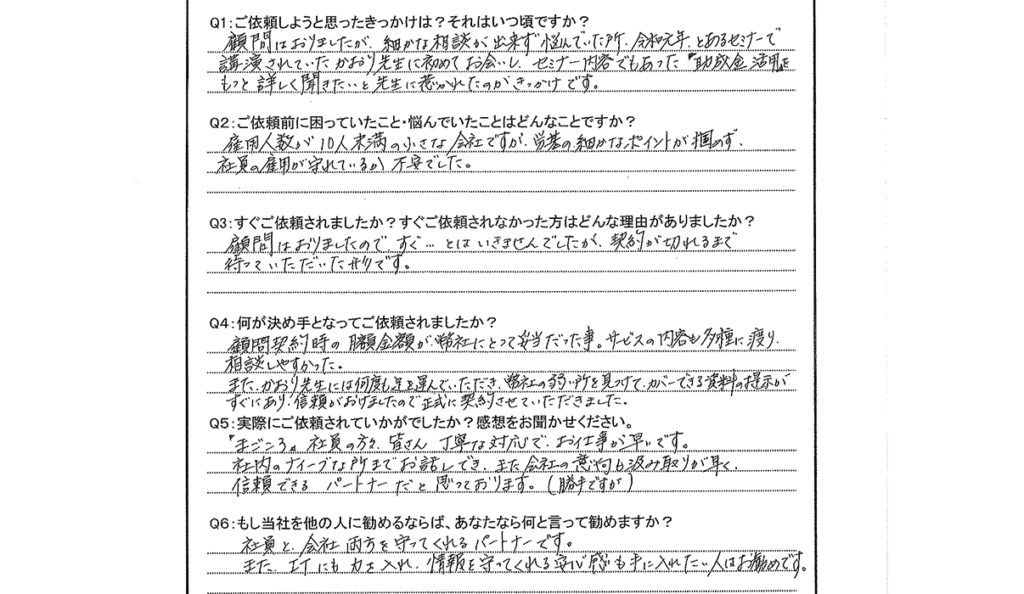 Q1：ご依頼しようと思ったきっかけは？それはいつ頃ですか？
顧問はおりましたが、細かな相談が出来ず悩んでいた所、令和元年、とあるセミナーで
講演されていたかおり先生に初めてお会いし、セミナー内容でもあった『助成金活用』を
もっと詳しく聞きたいと先生に惹かれたのがきっかけです。
Q2：ご依頼前に困っていたこと・悩んでいたことはどんなことですか？
雇用人数が10人未満の小さな会社ですが、労基の細かなポイントが掴めず、
社員の雇用が守れているか不安でした。
Q3：すぐご依頼されましたか？すぐご依頼されなかった方はどんな理由がありましたか？
顧問はおりましたので、すぐ…とはいきませんでしたが、契約が切れるまで
待っていただいた形です。
Q4：何が決め手となってご依頼されましたか？
顧問契約時の月額金額が弊社にとって妥当だった事。サービスの内容も多種に渡り、
相談しやすかった。
また、かおり先生には何度も足を運んでいただき、弊社の弱い所を見つけて、カバーできる資料の提示が
すぐにあり、信頼がおけましたので正式に契約させていただきました。
Q5：実際にご依頼されていかがでしたか？感想をお聞かせください。
『まごころ』社員の方々、皆さん丁寧な対応で、お仕事が早いです。
社内のナイーブな所までお話しでき、また会社の意向も汲み取りが早く、
信頼できるパートナーだと思っております。（勝手ですが）
Q6：もし当社を他の人に勧めるならば、あなたなら何と言って勧めますか？
社員と、会社両方を守ってくれるパートナーです。
また、ITにも力を入れ、情報を守ってくれる安心感も手に入れたい人はお勧めです。